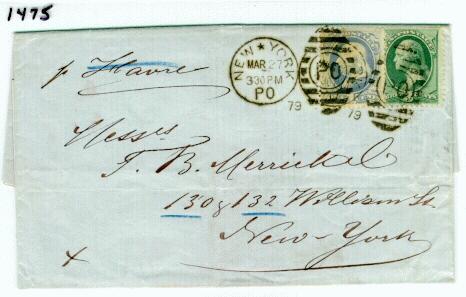 1475
p Havre
NEW ★ YORK
MAR 27
330PM
PO
79
PO
79
Messrs
T. B. Merrick &
130 & 132 William St.
New-York
x